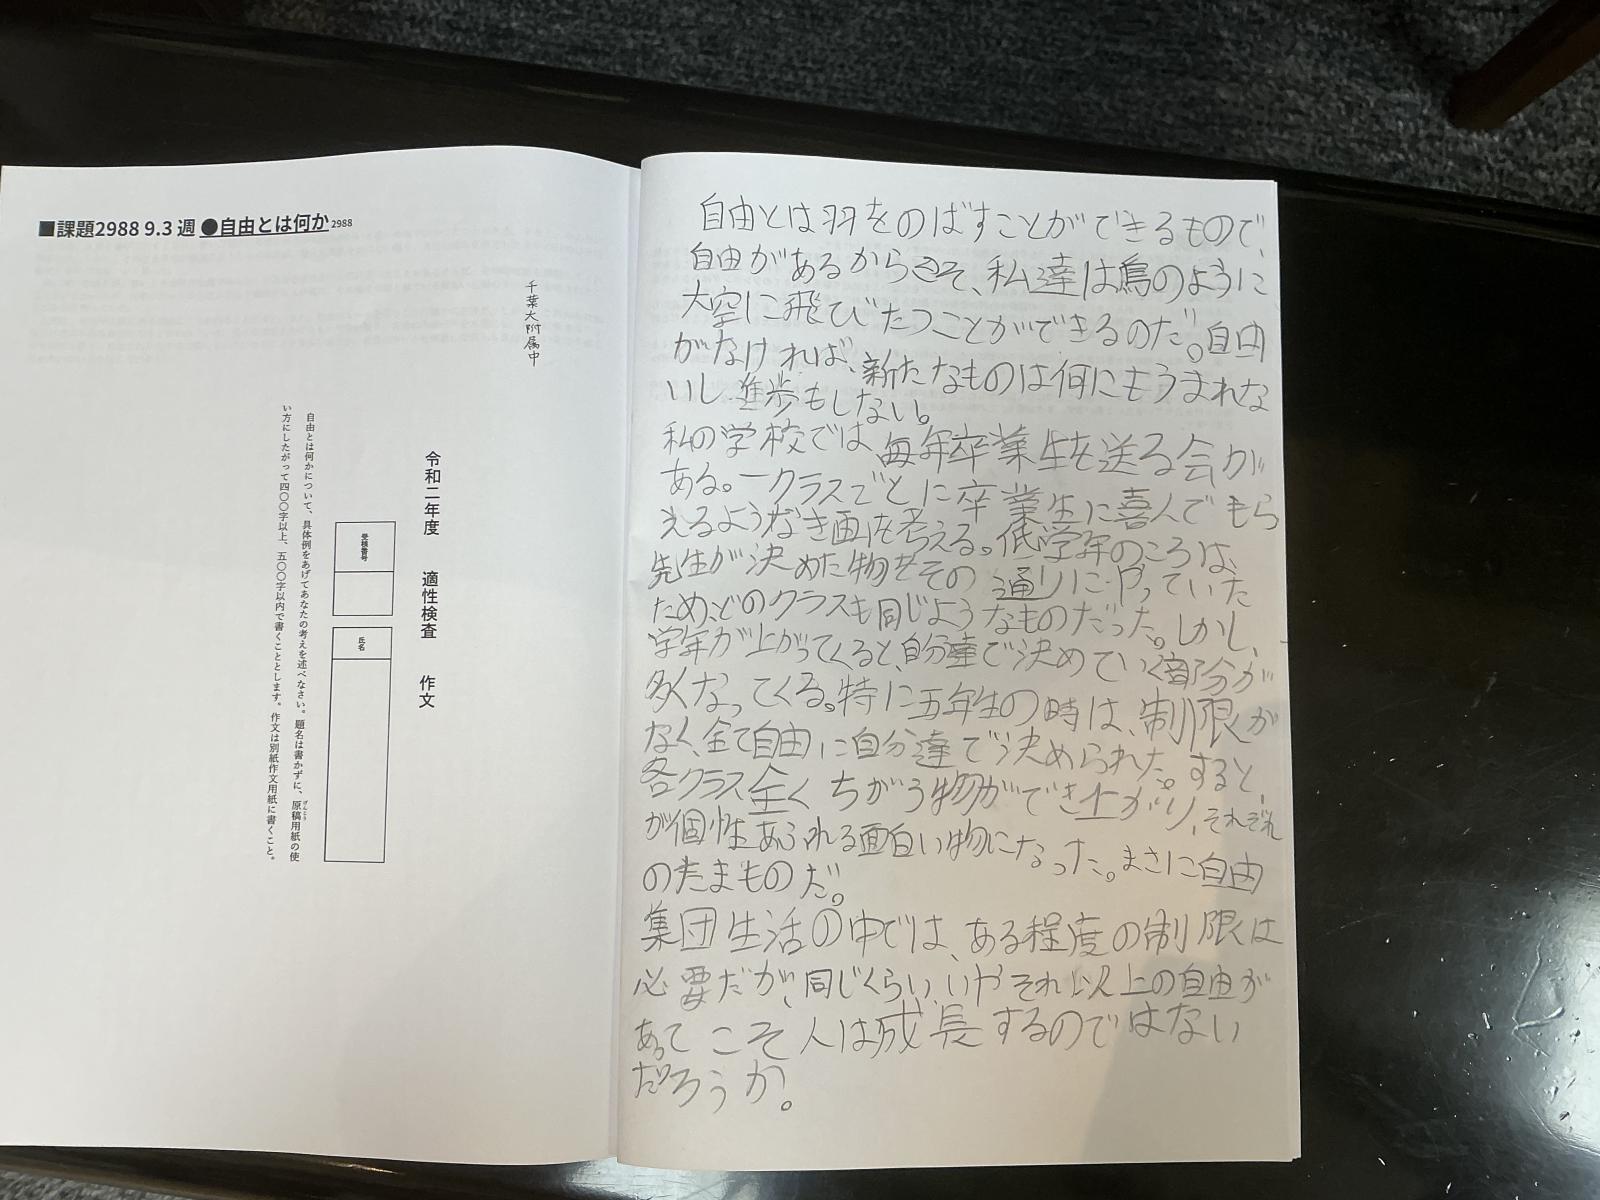 ■課題2988 9.3 週 ●自由とは何か 2988
千葉大附属中
令和二年度　適性検査　作文
受検番号
氏名
自由とは何かについて、具体例をあげてあなたの考えを述べなさい。題名は書かずに、原稿用紙の使
げんこう
い方にしたがって四〇〇字以上、五〇〇字以内で書くこととします。作文は別紙作文用紙に書くこと。
自由とは羽をのばすことができるもので、
自由があるからこそ、私達は鳥のように
大空に飛びたつことができるのだ。自由
がなければ、新たなものは何にもうまれな
いし進歩もしない。
私の学校では、毎年卒業生を送る会が
ある。一クラスごとに卒業生に喜んでもら
えるようなき画を考える。低学年のころは、
先生が決めた物をその通りにやっていた
ため、どのクラスも同じようなものだった。しかし、
学年が上がってくると、自分達で決めていく部分が
多くなってくる。特に五年生の時は、制限が
なく、全て自由に自分達で決められた。すると、
各クラス全くちがう物ができ上がり、それぞれ
が個性あふれる面白い物になった。まさに自由
のたまものだ。
集団生活の中では、ある程度の制限は
必要だが、同じくらい、いやそれ以上の自由が
あってこそ人は成長するのではない
だろうか。